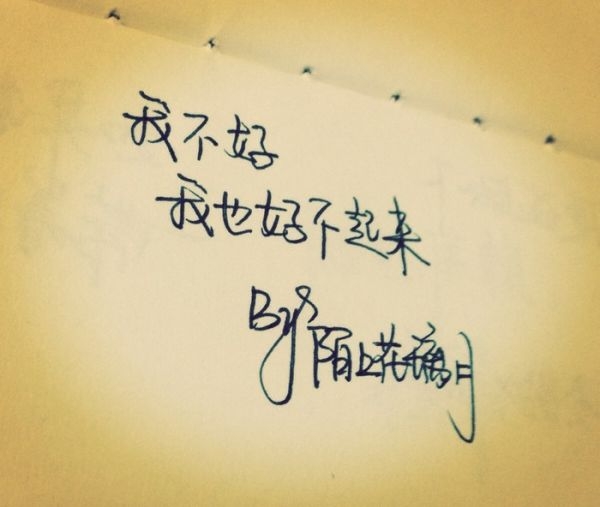 我不好
我也好不起来
By 陌上花月